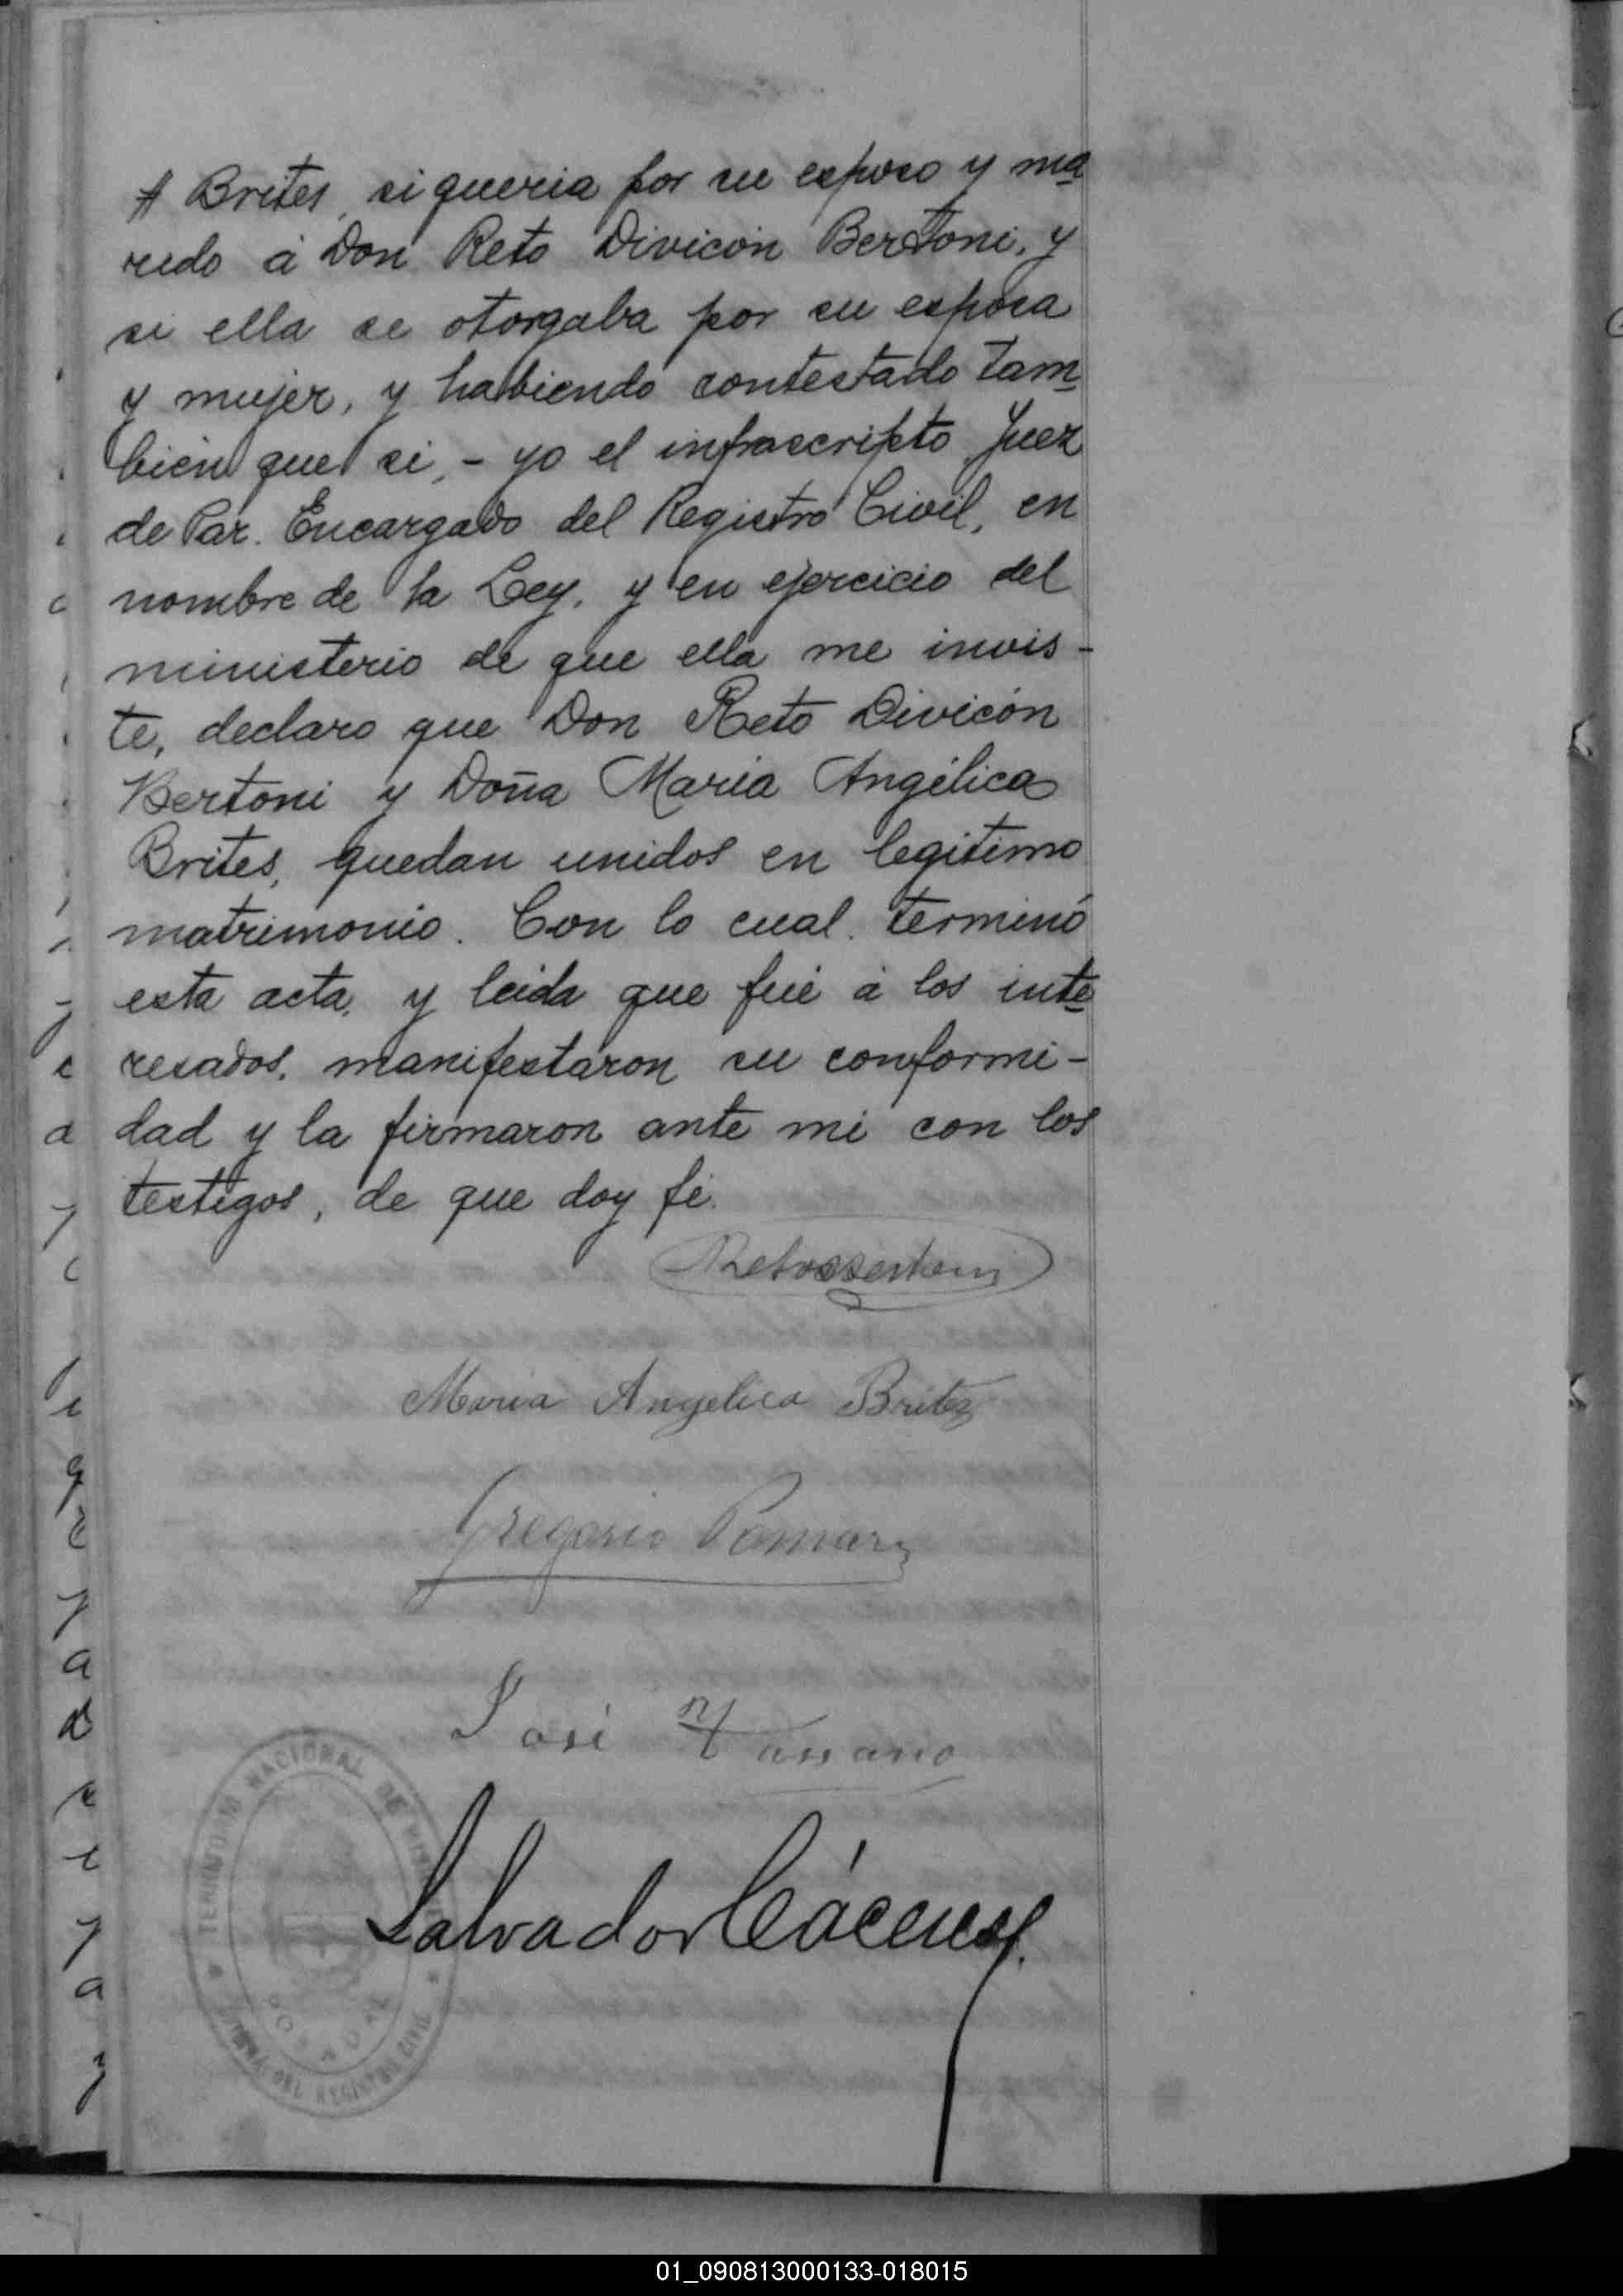 # Brites, si queria por su esposo y ma
rido á Don Reto Divicón Bertoni, y
si ella se otorgaba por su esposa
y mujer, y habiendo contestado tam
bien que si, - yo el infrascripto Juez
de Paz. Encargado del Registro Civil, en
nombre de la Ley, y en ejercicio del
ministerio de que ella me invis-
te, declaro que Don Reto Divicón
Bertoni y Doña Maria Angélica
Brites, quedan unidos en legitimo
matrimonio. Con lo cual terminó
esta acta, y leida que fué á los inte
resados, manifestaron su conformi-
dad y la firmaron ante mi con los
testigos, de que doy fé.
Reto Bertoni
Maria Angelica Britez
Gregorio Pomar
José
Salvador Cáceres
TERRITORIO NACIONAL DE MISIONES
POSADAS
OFICINA DEL REGISTRO CIVIL
01_090813000133-018015